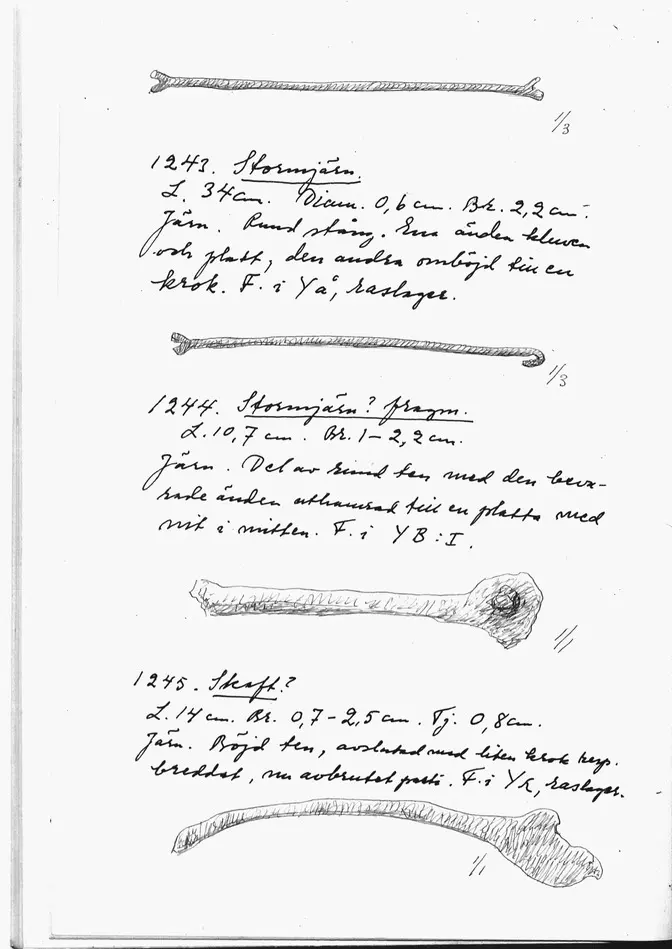 1/3
1243. Stormjärn.
L. 34 cm. Diam. 0,6 cm. Br. 2,2 cm.
Järn. Rund stång. Ena änden kluven
och platt, den andra omböjd till en
krok. F. i Yå, raslager.
1/3
1244. Stormjärn? fragm.
L. 10,7 cm. Br. 1–2,2 cm.
Järn. Del av rund ten med den beva-
rade änden uthamrad till en platta med
nit i mitten. F. i YB:I.
1/1
1245. Skaft?
L. 14 cm. Br. 0,7–2,5 cm. Tj. 0,8 cm.
Järn. Böjd ten, avslutad med liten krok resp.
breddat, nu avbrutet parti. F. i raslager.
1/1